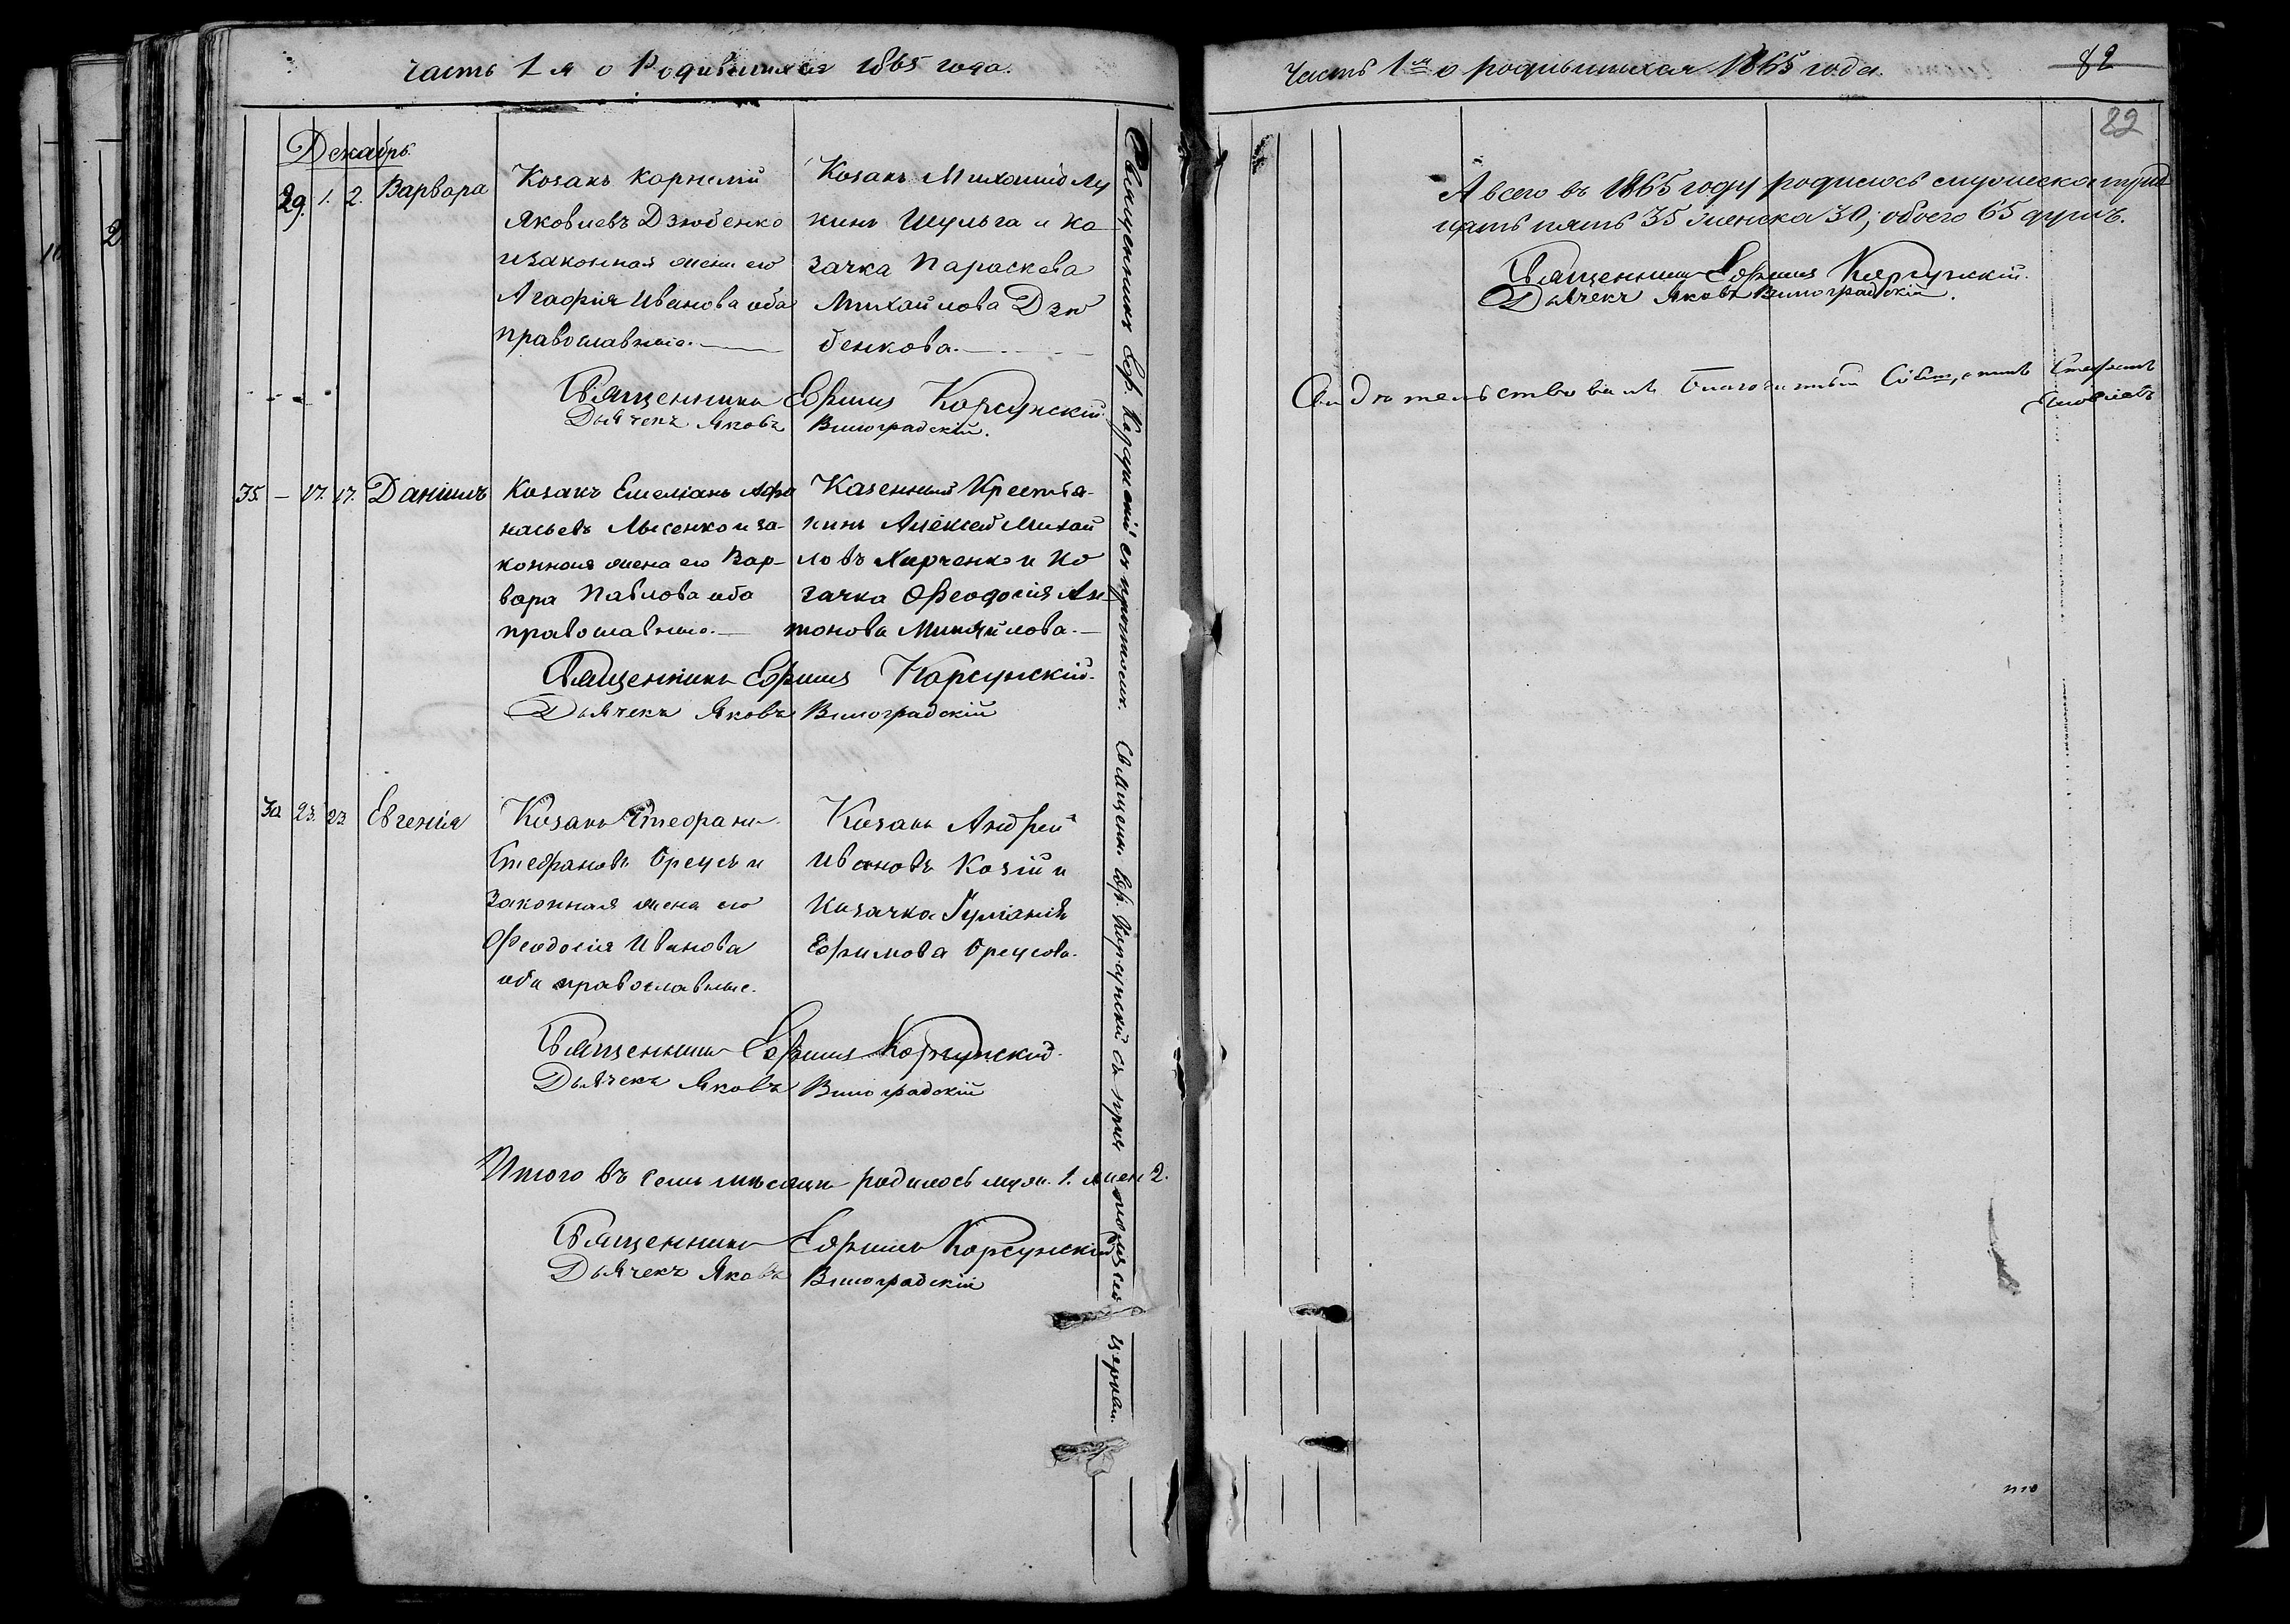 Часть 1я о Родившихся 1865 года.
Декабрь.
29. 1. 2. Варвара
Козакъ Корнелій
Яковлевъ Дзюбенко
и законная жена его
Агафія Иванова оба
православные.
Козакъ Михаилъ Лу
кинъ Шульга и ка
зачка Параскева
Михайлова Дзю
бенкова.
Священникъ Ефимій Корсунскій.
Дьячекъ Яковъ Виноградскій.
35. – 17. 17. Даніилъ
Козакъ Емеліанъ Афа
насьевъ Лысенко и за-
конная жена его Вар-
вара Павлова оба
православные.
Казенный Крестья-
нинъ Алексей Михай
ловъ Харченко и Ко
зачка Феодосія Ан
тонова Михайлова.
Священникъ Ефимій Корсунскій.
Дьячекъ Яковъ Виноградскій
30 23. 23. Евгенія
Козакъ Стефанъ
Стефановъ Бреусъ и
законная жена его
Феодосія Иванова
оба православные.
Козакъ Андрей
Ивановъ Козій и
Козачка Іуліанія
Ефимова Бреусова.
Священникъ Ефимій Корсунскій.
Дьячекъ Яковъ Виноградскій
Итого въ семъ месяце родилось муж. 1. жен 2.
Священникъ Ефимій Корсунскій
Дьячекъ Яковъ Виноградскій
Священникъ Еф. Корсунскій съ причтомъ.
Священ. Еф. Корсунскій съ причтомъ сей церкви.
Часть 1я о родившихся 1865 года.
82
82
А всего въ 1865 году родилось мужеска трид
цать пять 35 женска 30; обоего 65 душъ.
Священникъ Ефимій Корсунскій.
Дьячекъ Яковъ Виноградскій.
Свидетельствовалъ Благочинный Стефанъ